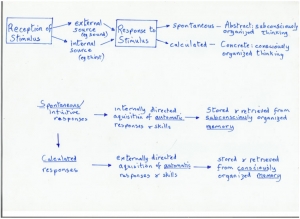 Reception of Stimulus
external source (eg sound)
internal source (eg thirst)
Response to Stimulus
spontaneous – Abstract: subconsciously organized thinking
calculated – Concrete: consciously organized thinking
Spontaneous/ intuitive responses
internally directed aquisition of automatic responses & skills
Stored & retrieved from subconsciously organized memory
Calculated responses
externally directed aquisition of automatic responses & skills
stored & retrieved from consciously organized memory